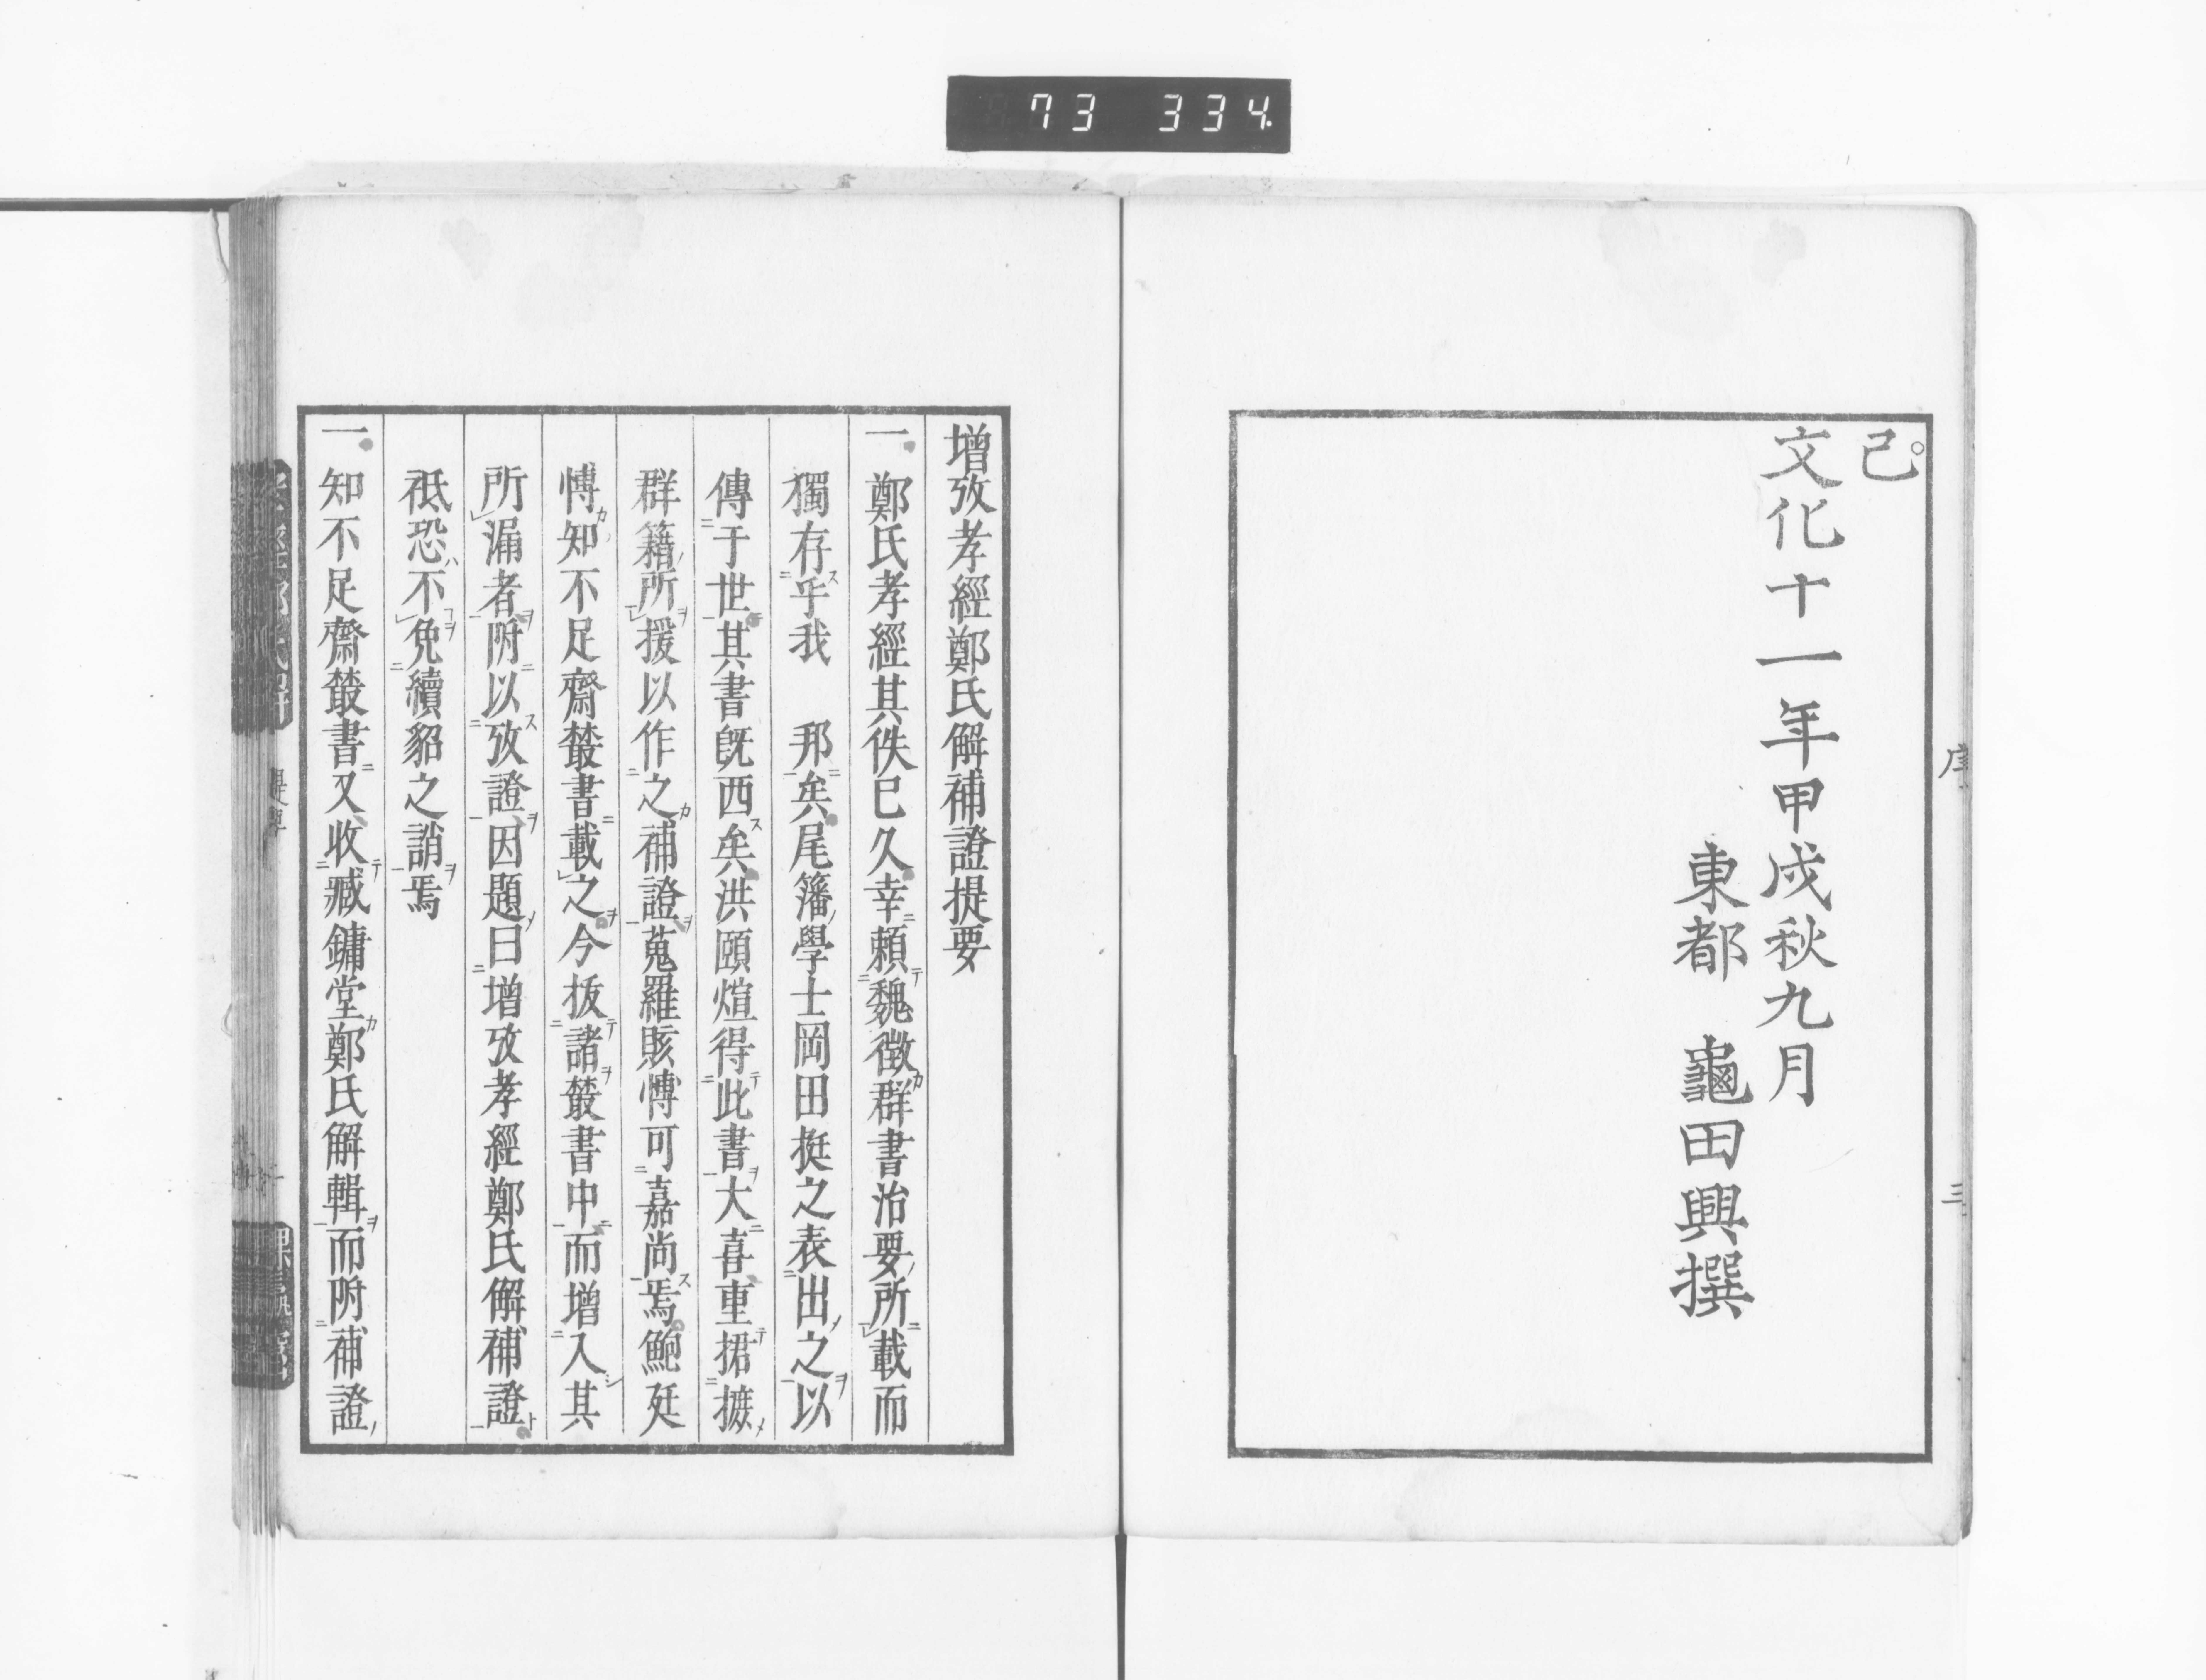 73 334
己
文化十一年甲戌秋九月
東都 龜田興撰
序
三
增攷孝經鄭氏解補證提要
一鄭氏孝經其佚已久幸賴魏徵群書治要所載而
獨存乎我 邦矣尾籓學士岡田挺之表出之以
傳于世其書旣西矣洪頤煊得此書大喜重捃摭
群籍所援以作之補證蒐羅賅愽可嘉尚焉鮑廷
愽知不足齋叢書載之今扳諸叢書中而增入其
所漏者附以攷證因題曰增攷孝經鄭氏解補證
祗恐不免續貂之誚焉
一知不足齋叢書又收臧鏞堂鄭氏解輯而附補證